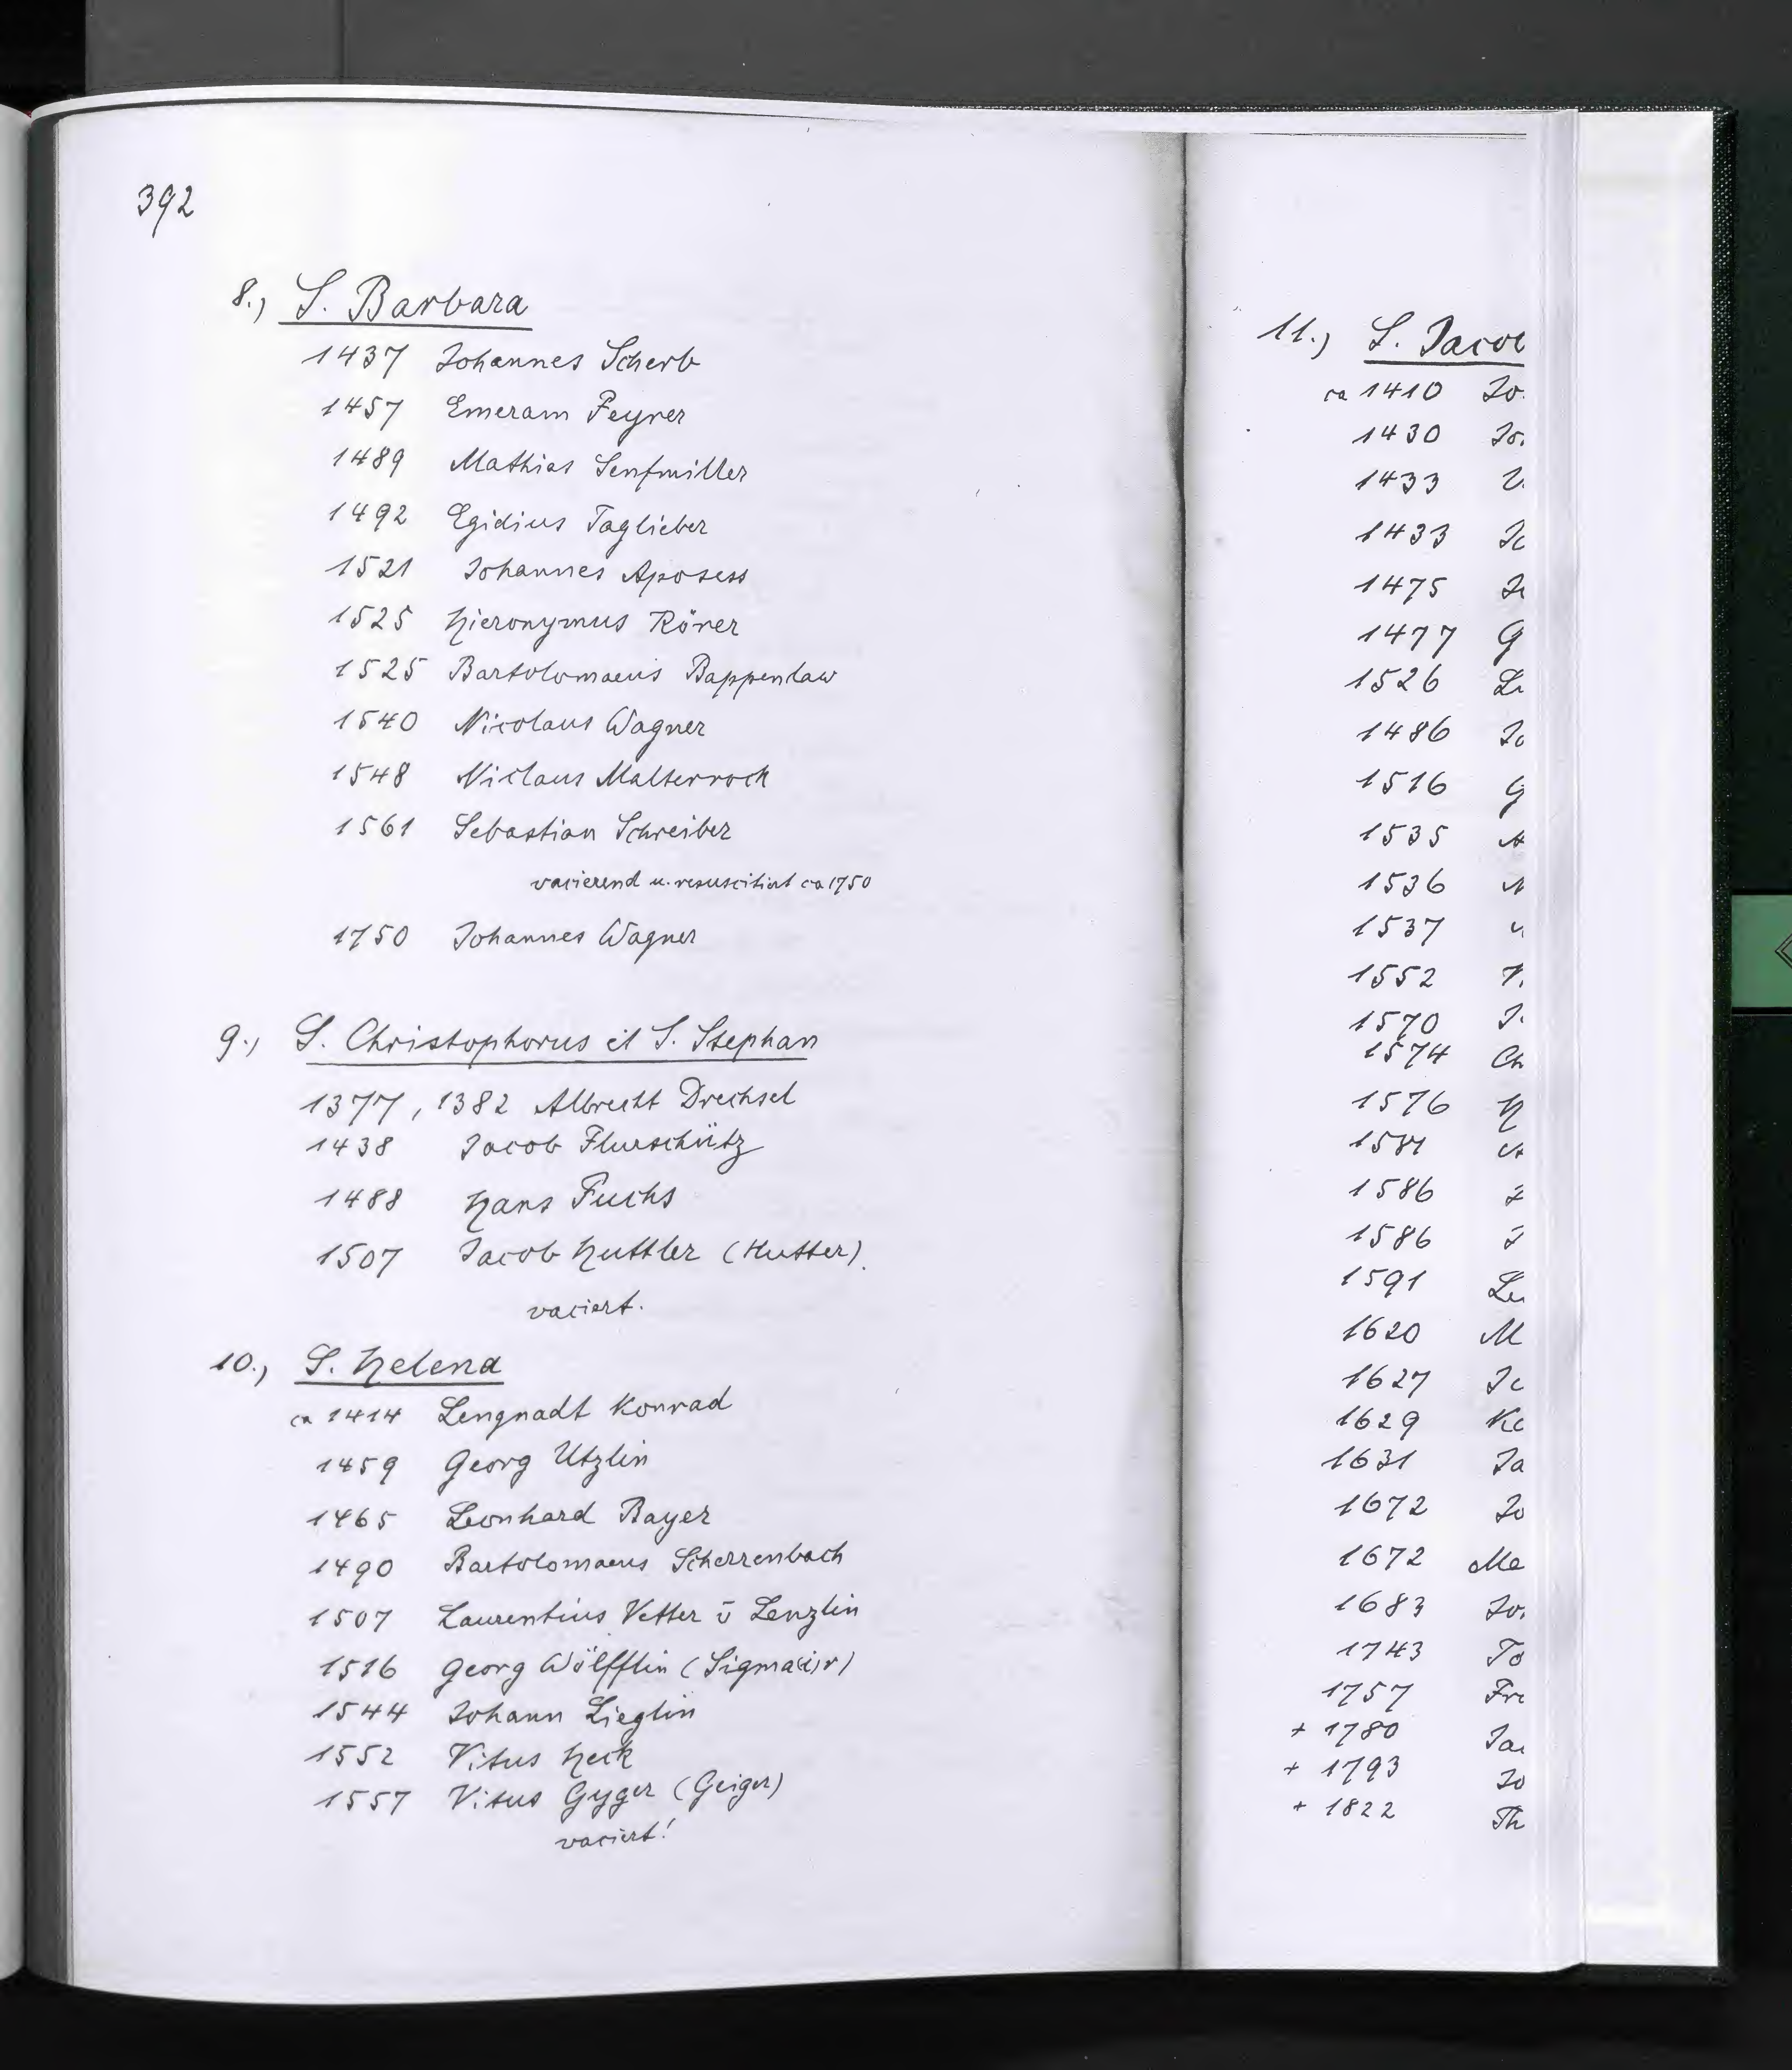 392
8.) S. Barbara
1437 Johannes Scherb
1457 Emeram Feyrer
1489 Mathias Senfmiller
1492 Egidius Taglieber
1521 Johannes Aposess
1525 Hieronymus Rörer
1525 Bartolomaeus Bappenlaw
1540 Nicolaus Wagner
1548 Niclaus Malterrock
1561 Sebastian Schreiber
vacierend u. resuscitiert ca 1750
1750 Johannes Wagner
9.) S. Christophorus et S. Stephan
1377, 1382 Albrecht Drechsel
1438 Jacob Flurschütz
1488 Hans Fuchs
1507 Jacob Huttler (Hutter).
vaciert.
10.) S. Helena
ca 1414 Lengnadt Konrad
1459 Georg Utzlin
1465 Leonhard Bayer
1490 Bartolomaeus Scherrenbach
1507 Laurentius Vetter v̄ Lenzlin
1516 Georg Wölfflin (Sigma(i)r)
1544 Johann Lieglin
1552 Vitus Heck
1557 Vitus Gyger (Geiger)
vaciert!
11.) S. Jacob
ca 1410 Jo
1430 Jo
1433
1433 Jo
1475
1477 G
1526 Le
1486 Jo
1516 G
1535
1536
1537
1552
1570
1574 Ch
1576 H
1581
1586
1586
1591 Le
1620 M
1627 Jo
1629 Ko
1631 Ja
1672 Jo
1672 Ma
1683 Jo
1743 Jo
1757 Fr
+ 1780 Ja
+ 1793 Jo
+ 1822 Th